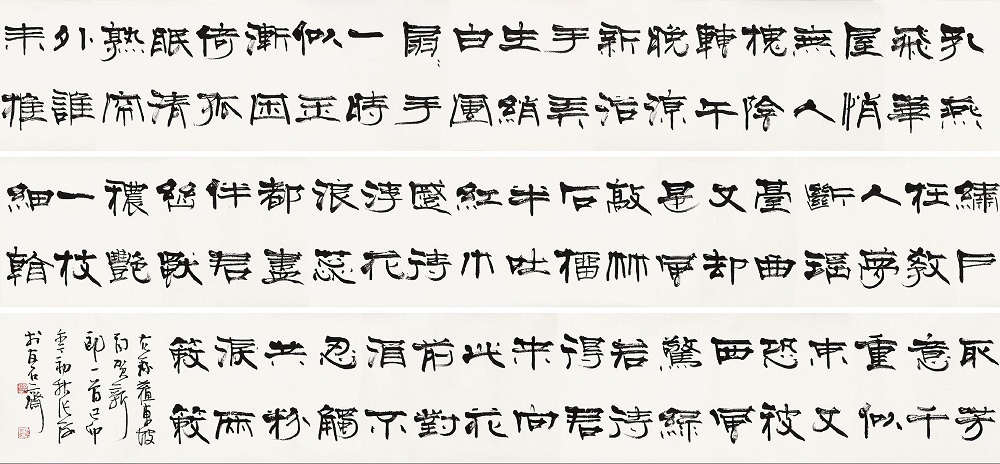 乳燕飛華屋悄無人槐陰轉午晚涼新浴手弄生綃白團扇〻手一時似玉漸困倚孤眠清熟簾外誰来推
繡戶枉教人夢斷瑤臺曲又却是風敲竹石榴半吐紅巾蹙待浮花浪蕊都盡伴君幽獨穠艷一枝細看
取芳意千重似束又恐被西風驚綠若待得君来向此花前對酒不忍觸共粉淚兩簌簌
東坡
賀新
郎一首己卯
初秋